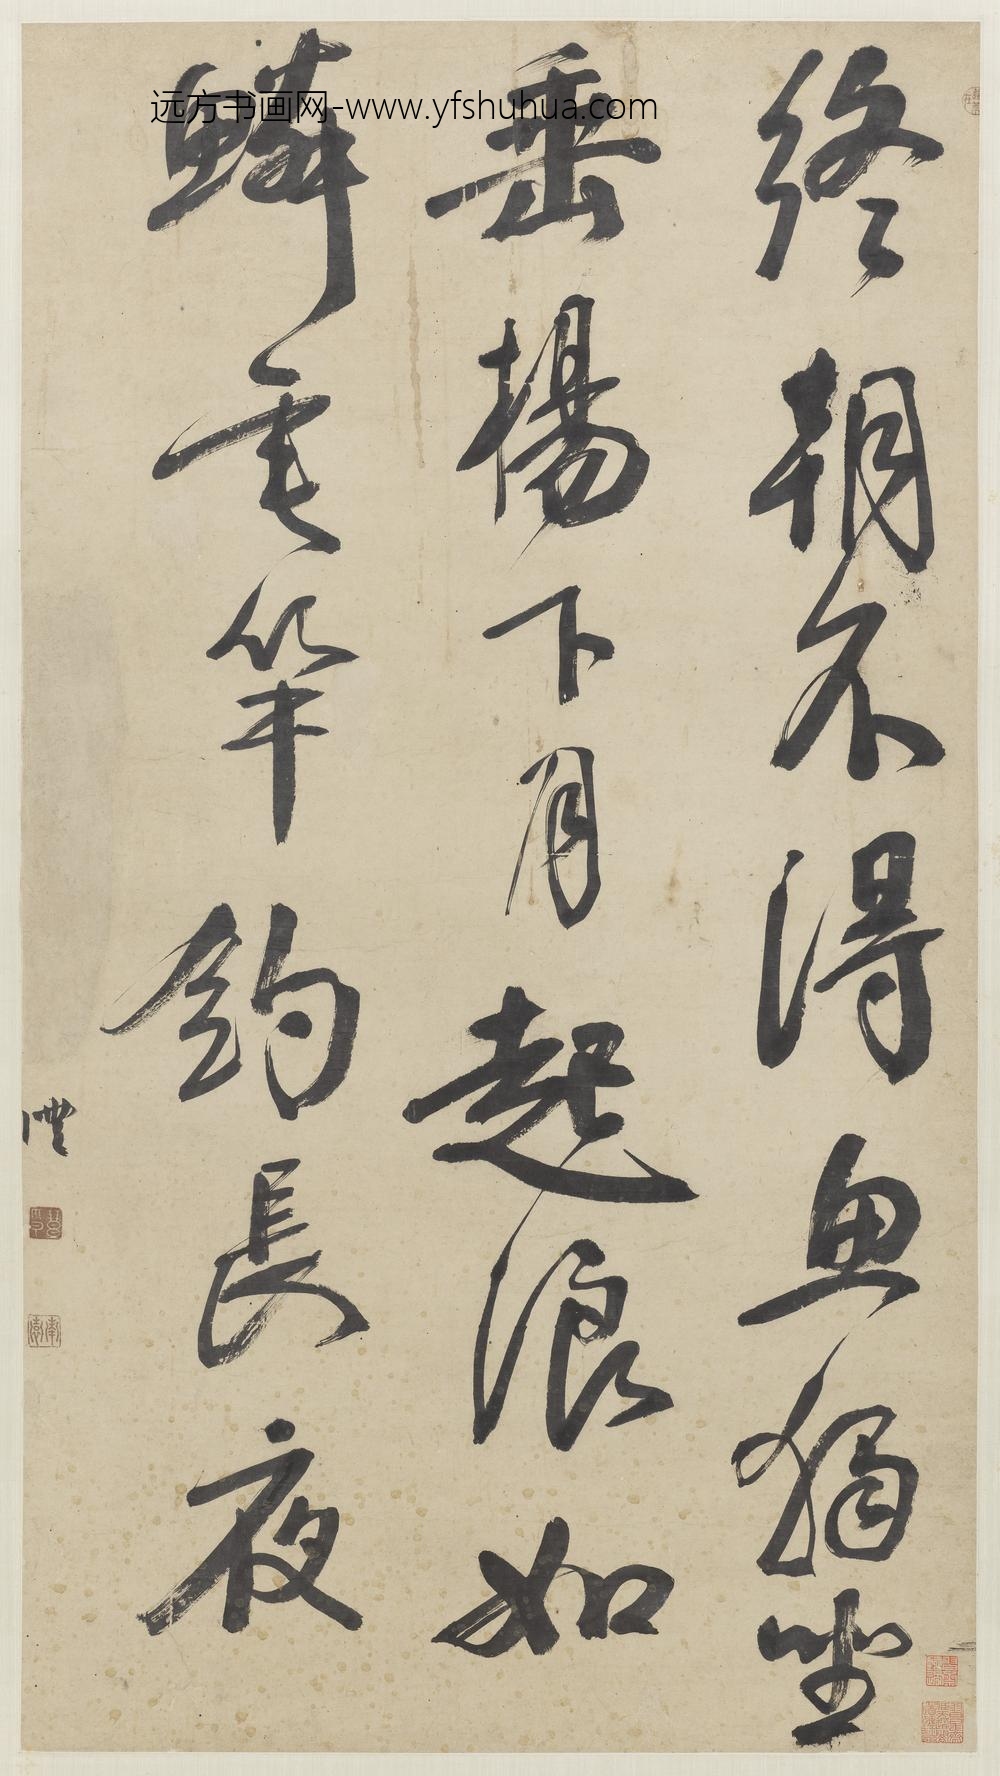 远方书画网-www.yfshuhua.com
終朝不得魚獨坐
垂楊下月起浪如
鱗垂竿釣長夜